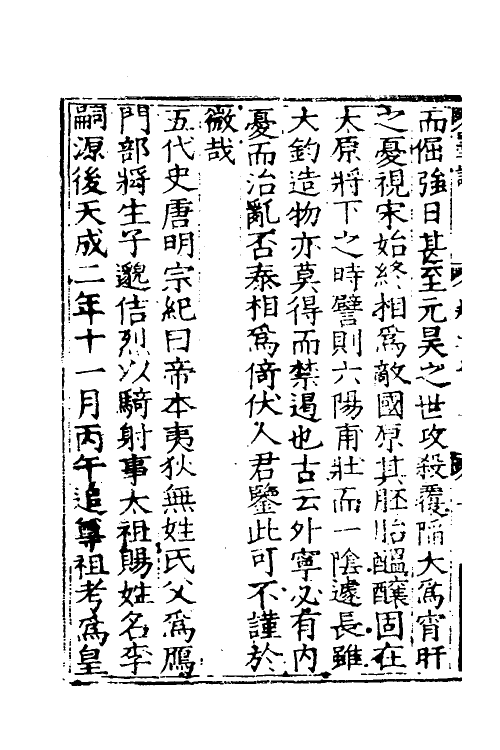 而倔強日甚至元昊之世攻殺覆陥大為宵旰
之憂視宋始終相為敵國原其胚胎醖釀固在
太原將下之時譬則六陽甫壯而一陰遽長雖
大鈞造物亦莫得而禁遏也古云外寧必有内
憂而治亂否泰相為倚伏人君鑒此可不謹於
微哉
五代史唐明宗紀曰帝本夷狄無姓氏父為鴈
門部將生子邈佶烈以騎射事太祖賜姓名李
嗣源後天成二年十一月丙午追尊祖考為皇